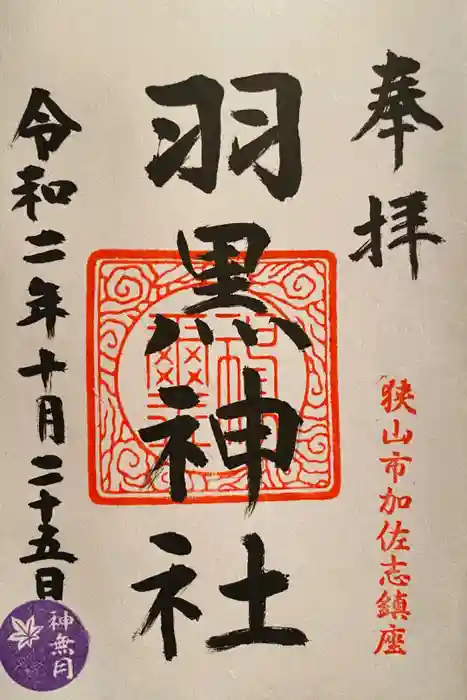 奉拝
狭山市加佐志鎮座
羽黒神社
令和二年十月二十五日
神無月